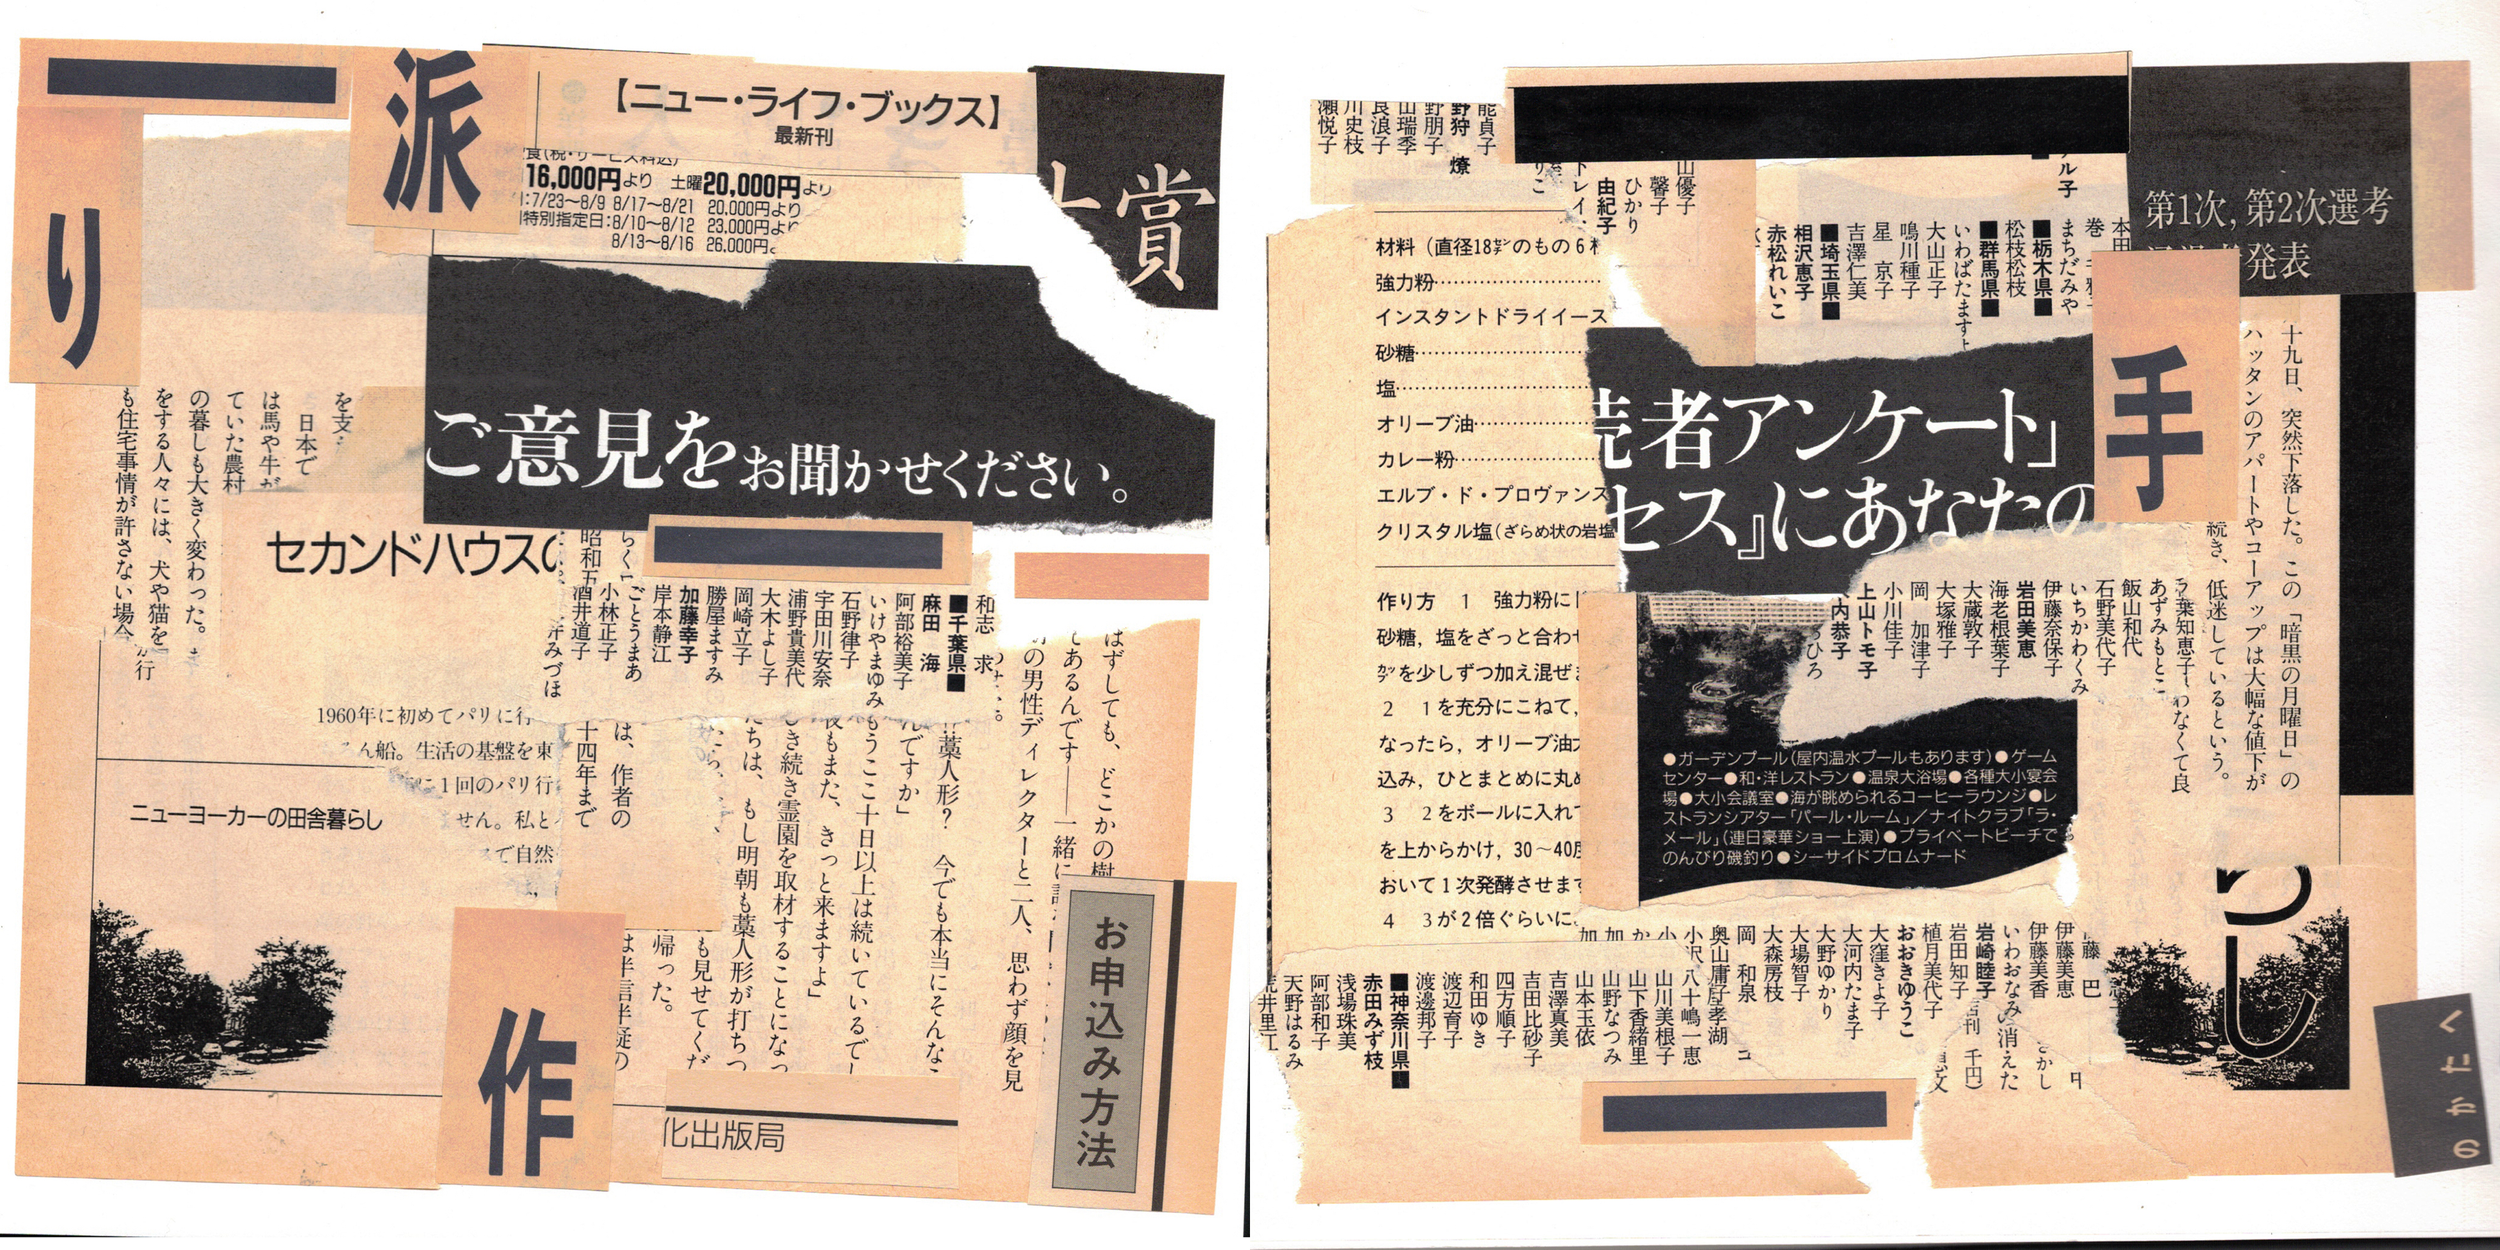 派
【ニュー・ライフ・ブックス】
最新刊
16,000円より 土曜20,000円より
7/23〜8/9 8/17〜8/21 20,000円より
特別指定日:8/10〜8/12 23,000円より
8/13〜8/16 26,000円
賞
り
ご意見をお聞かせください。
を支
日本で
は馬や牛が
ていた農村
の暮しも大きく変わった。
をする人々には、犬や猫を
も住宅事情が許さない場合
が行
セカンドハウスの
昭和五
和志 求
■千葉県■
麻田 海
阿部裕美子
いけやまゆみ
石野律子
宇田川安奈
浦野貴美代
大木よし子
岡崎立子
勝屋ますみ
加藤幸子
岸本静江
ごとうまあ
小林正子
酒井道子
井みづほ
1960年に初めてパリに行
ん船。生活の基盤を東
に1回のパリ行
せん。私と
スで自然
ニューヨーカーの田舎暮らし
はずしても、どこかの樹
てあるんです——一緒に
の男性ディレクターと二人、思わず顔を見
藁人形? 今でも本当にそんなこ
んですか」
もうここ十日以上は続いているでし
夜もまた、きっと来ますよ」
き続き霊園を取材することになっ
たちは、もし明朝も藁人形が打ちつ
も見せてくだ
帰った。
は、作者の
十四年まで
は半信半疑の
作
化出版局
お申込み方法
能貞子
野狩 燎
野朋子
山瑞季
良浪子
川史枝
瀬悦子
山優子
馨子
ひかり
由紀子
トレイ
りこ
ル子
第1次,第2次選考
発表
本田
巻
まちだみや
■栃木県■
松枝松枝
■群馬県■
いわばたますよ
大山正子
鳴川種子
星 京子
吉澤仁美
■埼玉県■
相沢恵子
赤松れいこ
材料(直径18㌢のもの6
強力粉
インスタントドライイース
砂糖
塩
オリーブ油
カレー粉
エルブ・ド・プロヴァンス
クリスタル塩(ざらめ状の岩塩
読者アンケート」
セス』にあなたの
手
十九日、突然下落した。この「暗黒の月曜日」の
ハッタンのアパートやコーアップは大幅な値下が
続き、低迷しているという。
わなくて良
作り方 1 強力粉に
砂糖,塩をざっと合わせ
を少しずつ加え混ぜま
2 1を充分にこねて,
なったら,オリーブ油大
込み,ひとまとめに丸め
3 2をボールに入れて
を上からかけ,30〜40度
おいて1次発酵させます
4 3が2倍ぐらいに
葉知恵子
あずみもとこ
飯山和代
石野美代子
いちかわくみ
伊藤奈保子
岩田美恵
海老根葉子
大蔵敦子
大塚雅子
岡 加津子
小川佳子
上山トモ子
内恭子
ひろ
●ガーデンプール(屋内温水プールもあります)●ゲーム
センター●和・洋レストラン●温泉大浴場●各種大小宴会
場●大小会議室●海が眺められるコーヒーラウンジ●レ
ストランシアター「パール・ルーム」/ナイトクラブ「ラ・
メール」(連日豪華ショー上演)●プライベートビーチで
のんびり磯釣り●シーサイドプロムナード
藤 巴
伊藤美恵
伊藤美香
いわおなみ
岩崎睦子
岩田知子
植月美代子
おおきゆうこ
大窪きよ子
大河内たま子
大野ゆかり
大場智子
大森房枝
岡 和泉
奥山庸子
小沢
孝湖
八十嶋一恵
山川美根子
山下香緒里
山野なつみ
山本玉依
吉澤真美
吉田比砂子
四方順子
和田ゆき
渡辺育子
渡邊邦子
■神奈川県■
赤田みず枝
浅場珠美
阿部和子
天野はるみ
荒井里江
消えた
千円)
さかし
し
のかたく